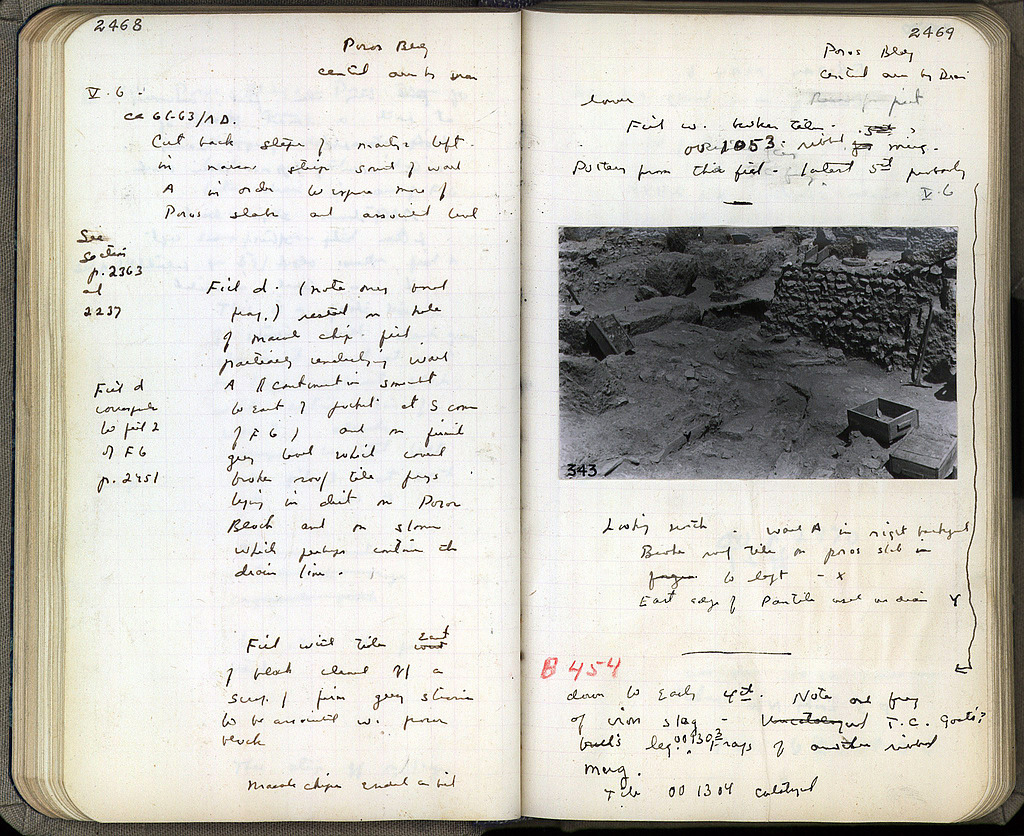 2468
Poros Bldg
central area by drain
V. 6.
ca 61-63/ΛΔ.
Cut back slope of left
in narrow strip south of wall
A in order to expose more of
Poros slabs and associated level
See
Section
p. 2363
and
2237
Fill d. (note ones bowl
frag.) rested on hole
of marble chip fill
partially underlying wall
A (continuation
to East of pocket at S corner
of F6) and on firm
grey level which covered
broken roof tile frags
lying in dirt on Poros
Block and on stones
which perhaps contain the
drain line.
Fill d
corresponds
to fill 2
of F6
p. 2451
Fill with tiles East
of block cleared off a
surf. of firm grey stratum
to be associated w. poros
block
Marble chips ended a bit
2469
Poros Bldg
central area by Drain
lower
Fill w. broken tiles.
001053. ribbed mug.
Pottery from this fill. latest 5th probably
V. 6
343
Looking south. wall A in right background
Broken roof tile on poros slab in
to left - X
East edge of Pantile used in drain Y
B 454
down to Early 4th. Note one frag
of iron slag - T.C. Goat's?
bull's leg. 001303 Frags of another ribbed
mug.
Tile 00 1304 catalogued